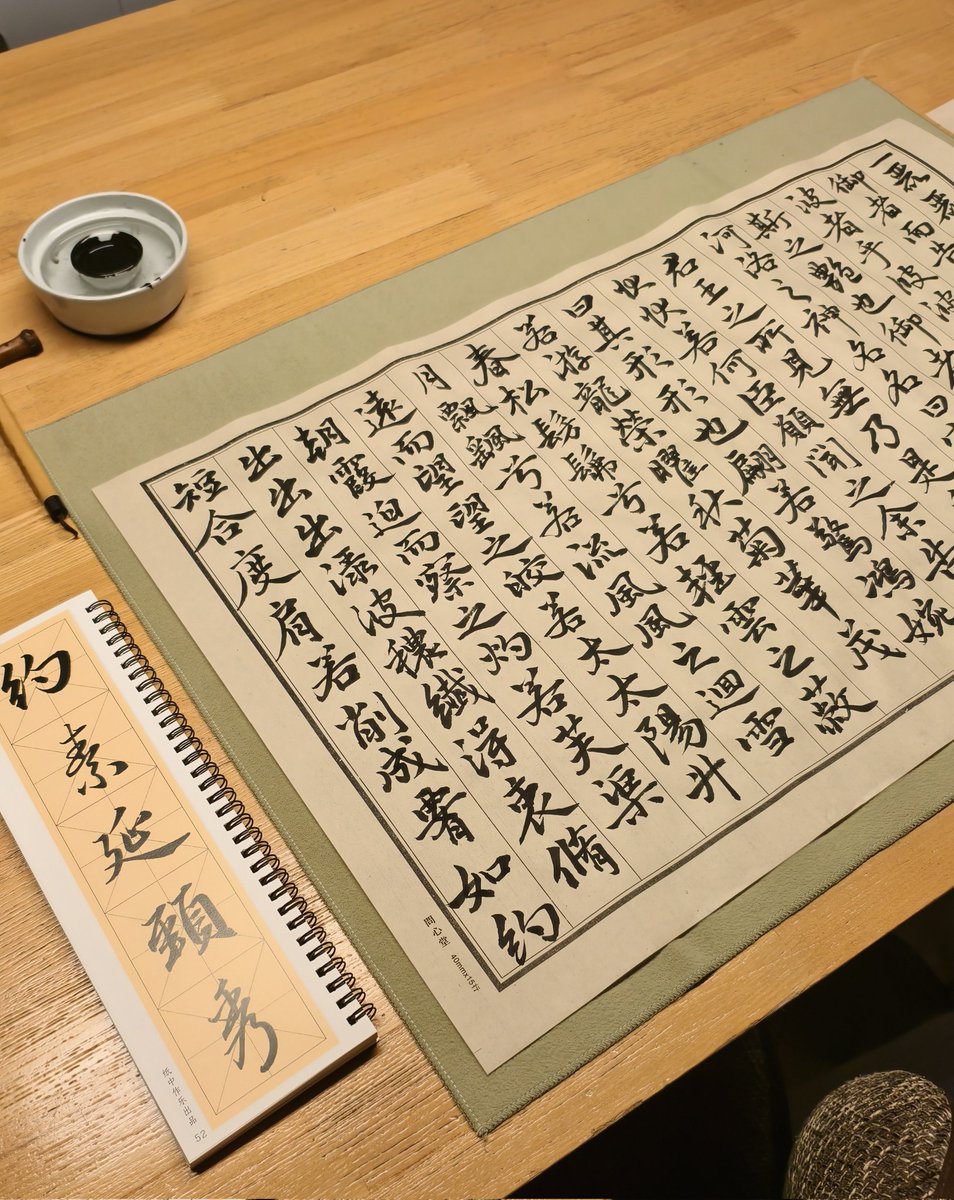 一
御者而
波者乎彼
斯之艷也御
河洛之神名名曰
君王之所見無乃是
状状若何臣願聞之余告
曰其形形也翩若驚鴻婉
若游龍榮曜秋菊華茂
春松髣髴兮若輕雲之蔽
月飄飖兮若流風風之迴雪
遠而望望之皎若太太陽升
朝霞迫而察之灼若芙渠
出出出渌波穠纖得衷脩
短合度肩若削成如約
問心堂 40mmx15行
約素延頸秀
纸中作乐出品
52